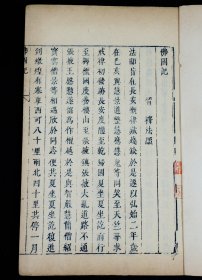 佛國記
晉 釋法顯
法顯昔在長安慨律藏殘缺於是遂以弘始二年歲
在己亥與慧景道整慧應慧嵬等同契至天竺尋求
戒律初發跡長安度隴至乾歸國夏坐夏坐訖前行
至耨檀國度養樓山至張掖鎮張掖大亂道路不通
張掖王慇懃遂留為作檀越於是與智嚴慧簡僧紹
寶雲僧景等相遇欣於同志便共夏坐夏坐訖復進
到燉煌有塞東西可八十里南北四十里共停一月
佛國記